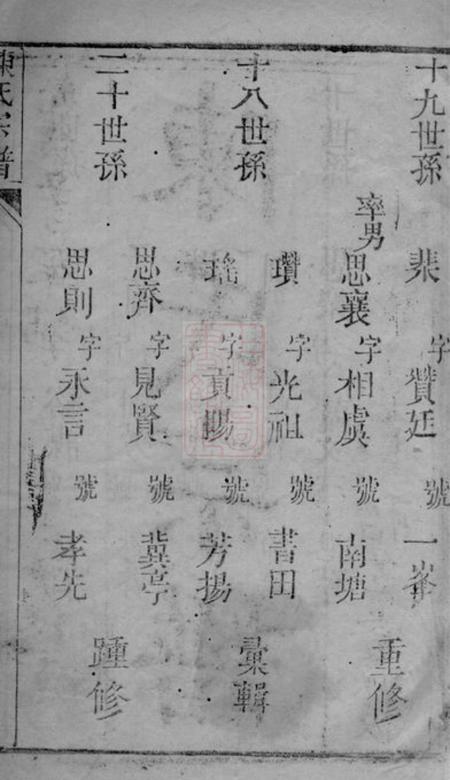 十九世孫
裴 字贊廷 號一峯
率男思襄 字相虞 號南塘
重修
十八世孫
瓚 字光祖 號書田
瑤 字貢賜 號芳揚
彙輯
二十世孫
思齊 字見賢 號冀亭
思則 字永言 號孝先
踵修
陳氏宗譜